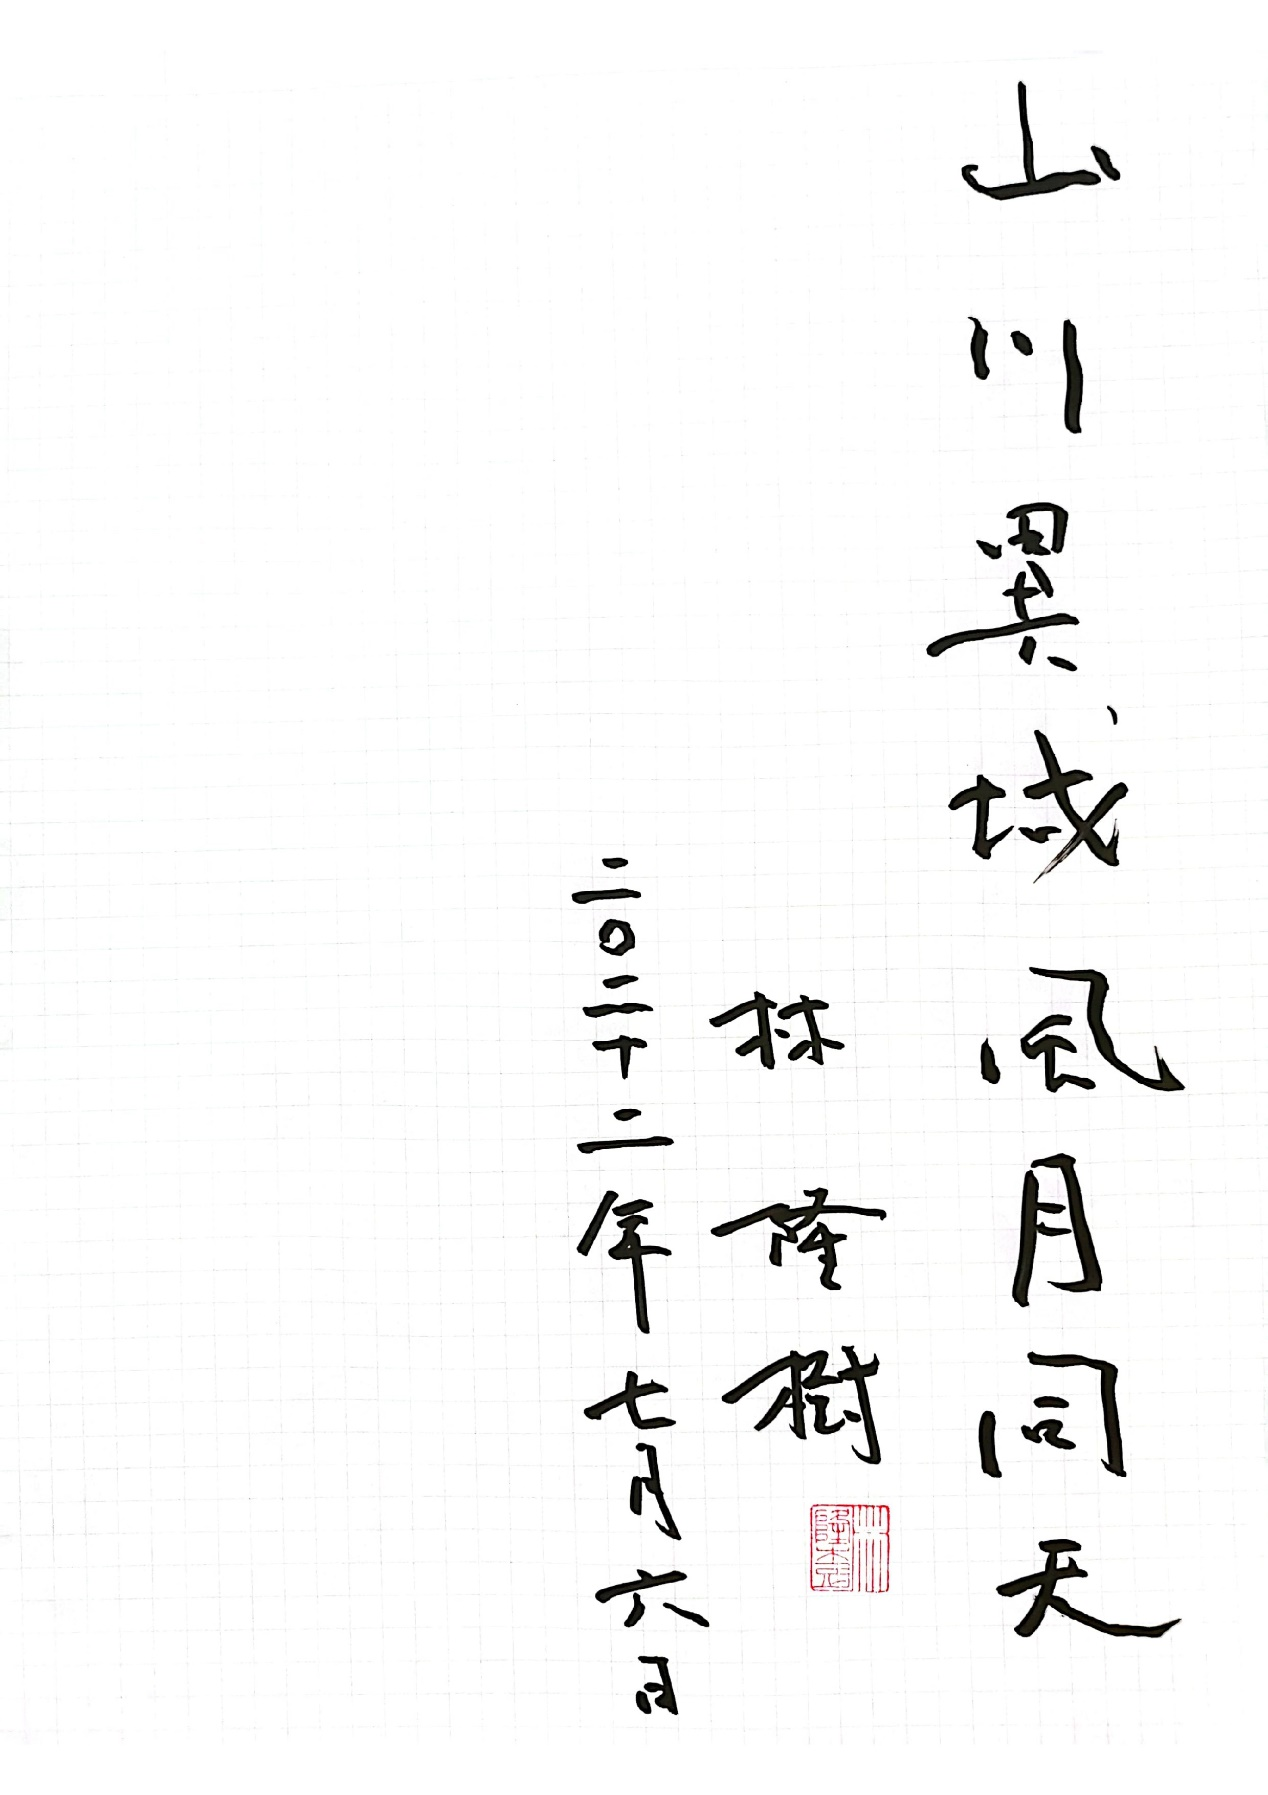 山川異域風月同天
林隆樹
二〇二十二年七月六日